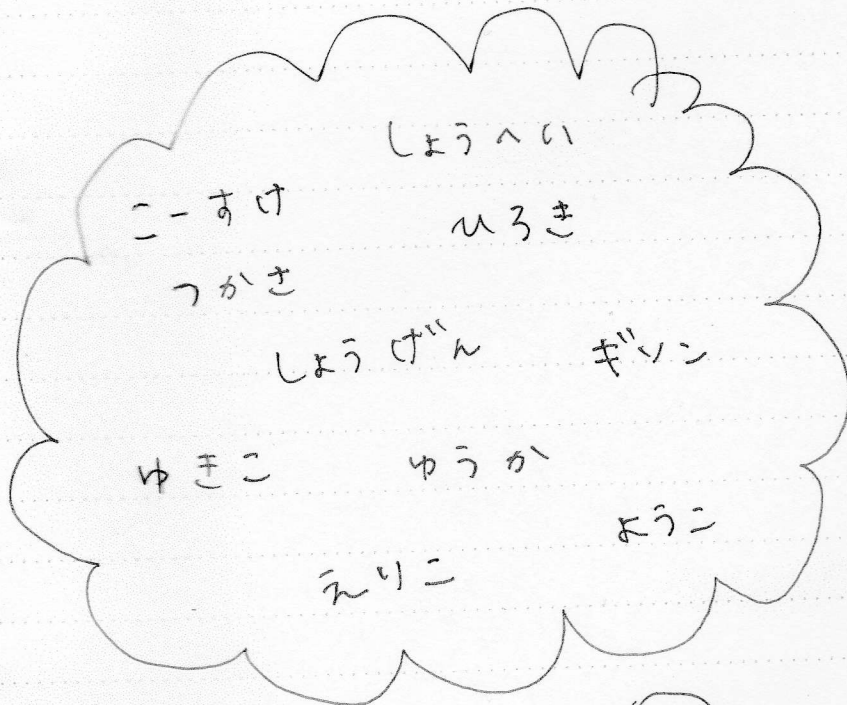 しょうへい
こーすけ
ひろき
つかさ
しょうげん
ギソン
ゆきこ
ゆうか
ようこ
えりこ